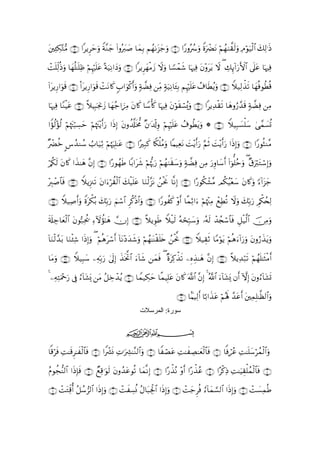 ذَٰلِكَ الْيَوْمِ وَلَقَّاهُمْ نَضْرَةً وَسُرُورًا (11) وَجَزَاهُم بِمَا صَبَرُوا جَنَّةً وَحَرِيرًا (12) مُّتَّكِئِينَ
فِيهَا عَلَى الْأَرَائِكِ ۖ لَا يَرَوْنَ فِيهَا شَمْسًا وَلَا زَمْهَرِيرًا (13) وَدَانِيَةً عَلَيْهِمْ ظِلَالُهَا وَذُلِّلَتْ
قُطُوفُهَا تَذْلِيلًا (14) وَيُطَافُ عَلَيْهِم بِآنِيَةٍ مِّن فِضَّةٍ وَأَكْوَابٍ كَانَتْ قَوَارِيرَا (15) قَوَارِيرَا
مِن فِضَّةٍ قَدَّرُوهَا تَقْدِيرًا (16) وَيُسْقَوْنَ فِيهَا كَأْسًا كَانَ مِزَاجُهَا زَنجَبِيلًا (17) عَيْنًا فِيهَا
تُسَمَّىٰ سَلْسَبِيلًا (18) ۞ وَيَطُوفُ عَلَيْهِمْ وِلْدَانٌ مُّخَلَّدُونَ إِذَا رَأَيْتَهُمْ حَسِبْتَهُمْ لُؤْلُؤًا
مَّنثُورًا (19) وَإِذَا رَأَيْتَ ثَمَّ رَأَيْتَ نَعِيمًا وَمُلْكًا كَبِيرًا (20) عَالِيَهُمْ ثِيَابُ سُندُسٍ خُضْرٌ
وَإِسْتَبْرَقٌ ۖ وَحُلُّوا أَسَاوِرَ مِن فِضَّةٍ وَسَقَاهُمْ رَبُّهُمْ شَرَابًا طَهُورًا (21) إِنَّ هَٰذَا كَانَ لَكُمْ
جَزَاءً وَكَانَ سَعْيُكُم مَّشْكُورًا (22) إِنَّا نَحْنُ نَزَّلْنَا عَلَيْكَ الْقُرْآنَ تَنزِيلًا (23) فَاصْبِرْ
لِحُكْمِ رَبِّكَ وَلَا تُطِعْ مِنْهُمْ آثِمًا أَوْ كَفُورًا (24) وَاذْكُرِ اسْمَ رَبِّكَ بُكْرَةً وَأَصِيلًا (25)
وَمِنَ اللَّيْلِ فَاسْجُدْ لَهُ وَسَبِّحْهُ لَيْلًا طَوِيلًا (26) إِنَّ هَٰؤُلَاءِ يُحِبُّونَ الْعَاجِلَةَ
وَيَذَرُونَ وَرَاءَهُمْ يَوْمًا ثَقِيلًا (27) نَّحْنُ خَلَقْنَاهُمْ وَشَدَدْنَا أَسْرَهُمْ ۖ وَإِذَا شِئْنَا بَدَّلْنَا
أَمْثَالَهُمْ تَبْدِيلًا (28) إِنَّ هَٰذِهِ تَذْكِرَةٌ ۖ فَمَن شَاءَ اتَّخَذَ إِلَىٰ رَبِّهِ سَبِيلًا (29) وَمَا
تَشَاءُونَ إِلَّا أَن يَشَاءَ اللَّهُ ۚ إِنَّ اللَّهَ كَانَ عَلِيمًا حَكِيمًا (30) يُدْخِلُ مَن يَشَاءُ فِي رَحْمَتِهِ ۚ
وَالظَّالِمِينَ أَعَدَّ لَهُمْ عَذَابًا أَلِيمًا (31)
سورة: المرسلات
بِسْمِ اللَّهِ الرَّحْمَٰنِ الرَّحِيمِ
وَالْمُرْسَلَاتِ عُرْفًا (1) فَالْعَاصِفَاتِ عَصْفًا (2) وَالنَّاشِرَاتِ نَشْرًا (3) فَالْفَارِقَاتِ فَرْقًا
(4) فَالْمُلْقِيَاتِ ذِكْرًا (5) عُذْرًا أَوْ نُذْرًا (6) إِنَّمَا تُوعَدُونَ لَوَاقِعٌ (7) فَإِذَا النُّجُومُ
طُمِسَتْ (8) وَإِذَا السَّمَاءُ فُرِجَتْ (9) وَإِذَا الْجِبَالُ نُسِفَتْ (10) وَإِذَا الرُّسُلُ أُقِّتَتْ (11)